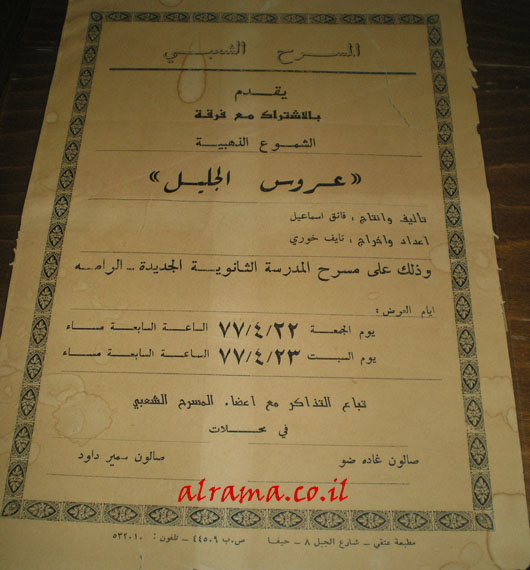 المسرح الشعبي
يقدم
بالاشتراك مع فرقة
الشموع الذهبية
«عروس الجليل»
تاليف وانتاج : فائق اسماعيل
اعداد واخراج : نايف خوري
وذلك على مسرح المدرسة الثانوية الجديدة - الرامه
ايام العرض :
يوم الجمعة ٧٧/٤/٢٢ الساعة السابعة مساء
يوم السبت ٧٧/٤/٢٣ الساعة السابعة مساء
تباع التذاكر مع اعضاء المسرح الشعبي
في محلات
صالون غاده ضو صالون سمير داود
alrama.co.il
مطبعة عتقي - شارع الجبل ٨ - حيفا ص.ب ٤٤٥٠٩ - تلفون : ٥٣٢٠١٠